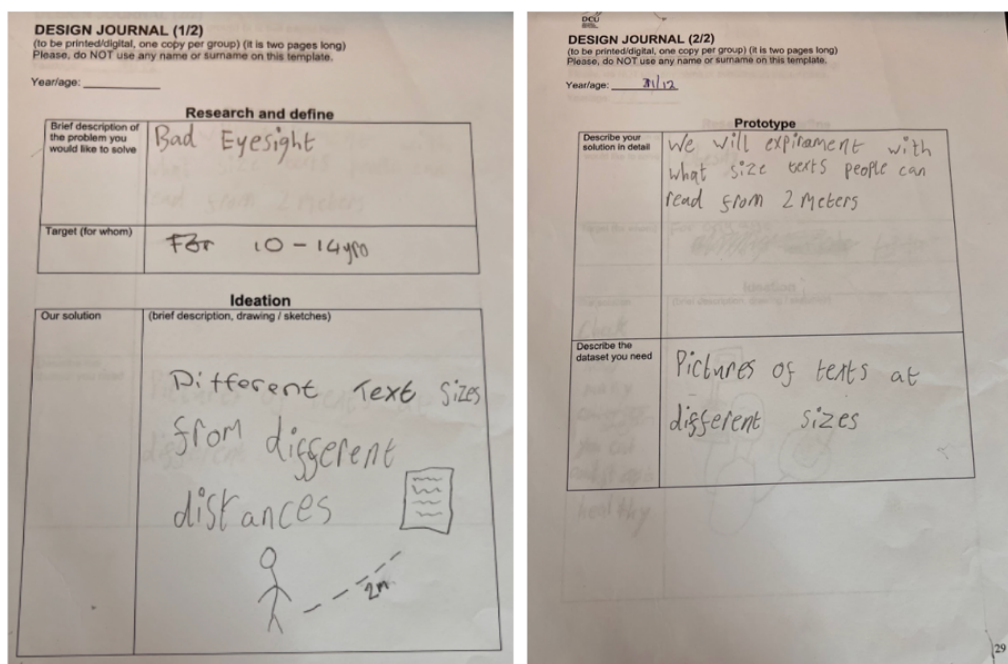 DESIGN JOURNAL (1/2)
(to be printed/digital, one copy per group) (it is two pages long)
Please, do NOT use any name or surname on this template.
Year/age:
Research and define
Brief description of
the problem you
would like to solve
Bad Eyesight
Target (for whom)
For 10 - 14 yro
Ideation
Our solution
(brief description, drawing / sketches)
Different Text Sizes
from different
distances
2m
DCU
DESIGN JOURNAL (2/2)
(to be printed/digital, one copy per group) (it is two pages long)
Please, do NOT use any name or surname on this template.
Year/age: /12
Prototype
Describe your
solution in detail
We will expirament with
what size texts people can
read from 2 Meters
Describe the
dataset you need
Pictures of texts at
different sizes